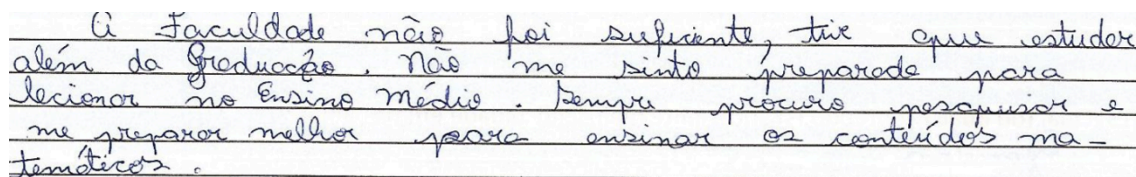 A Faculdade não foi suficiente, tive que estudar
além da Graduação. Não me sinto preparada para
lecionar no Ensino Médio. Sempre procuro pesquisar e
me preparar melhor para ensinar os conteúdos ma-
temáticos.